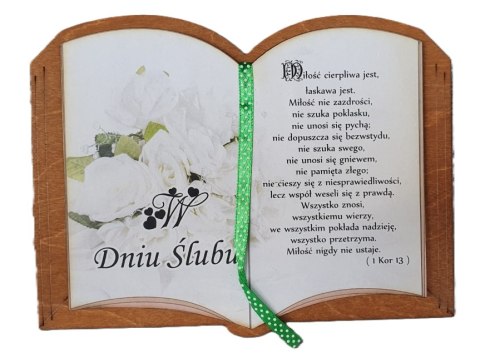 W
Dniu Ślubu
Miłość cierpliwa jest,
łaskawa jest.
Miłość nie zazdrości,
nie szuka poklasku,
nie unosi się pychą;
nie dopuszcza się bezwstydu,
nie szuka swego,
nie unosi się gniewem,
nie pamięta złego;
nie cieszy się z niesprawiedliwości,
lecz współ weseli się z prawdą.
Wszystko znosi,
wszystkiemu wierzy,
we wszystkim pokłada nadzieję,
wszystko przetrzyma.
Miłość nigdy nie ustaje.
( 1 Kor 13 )